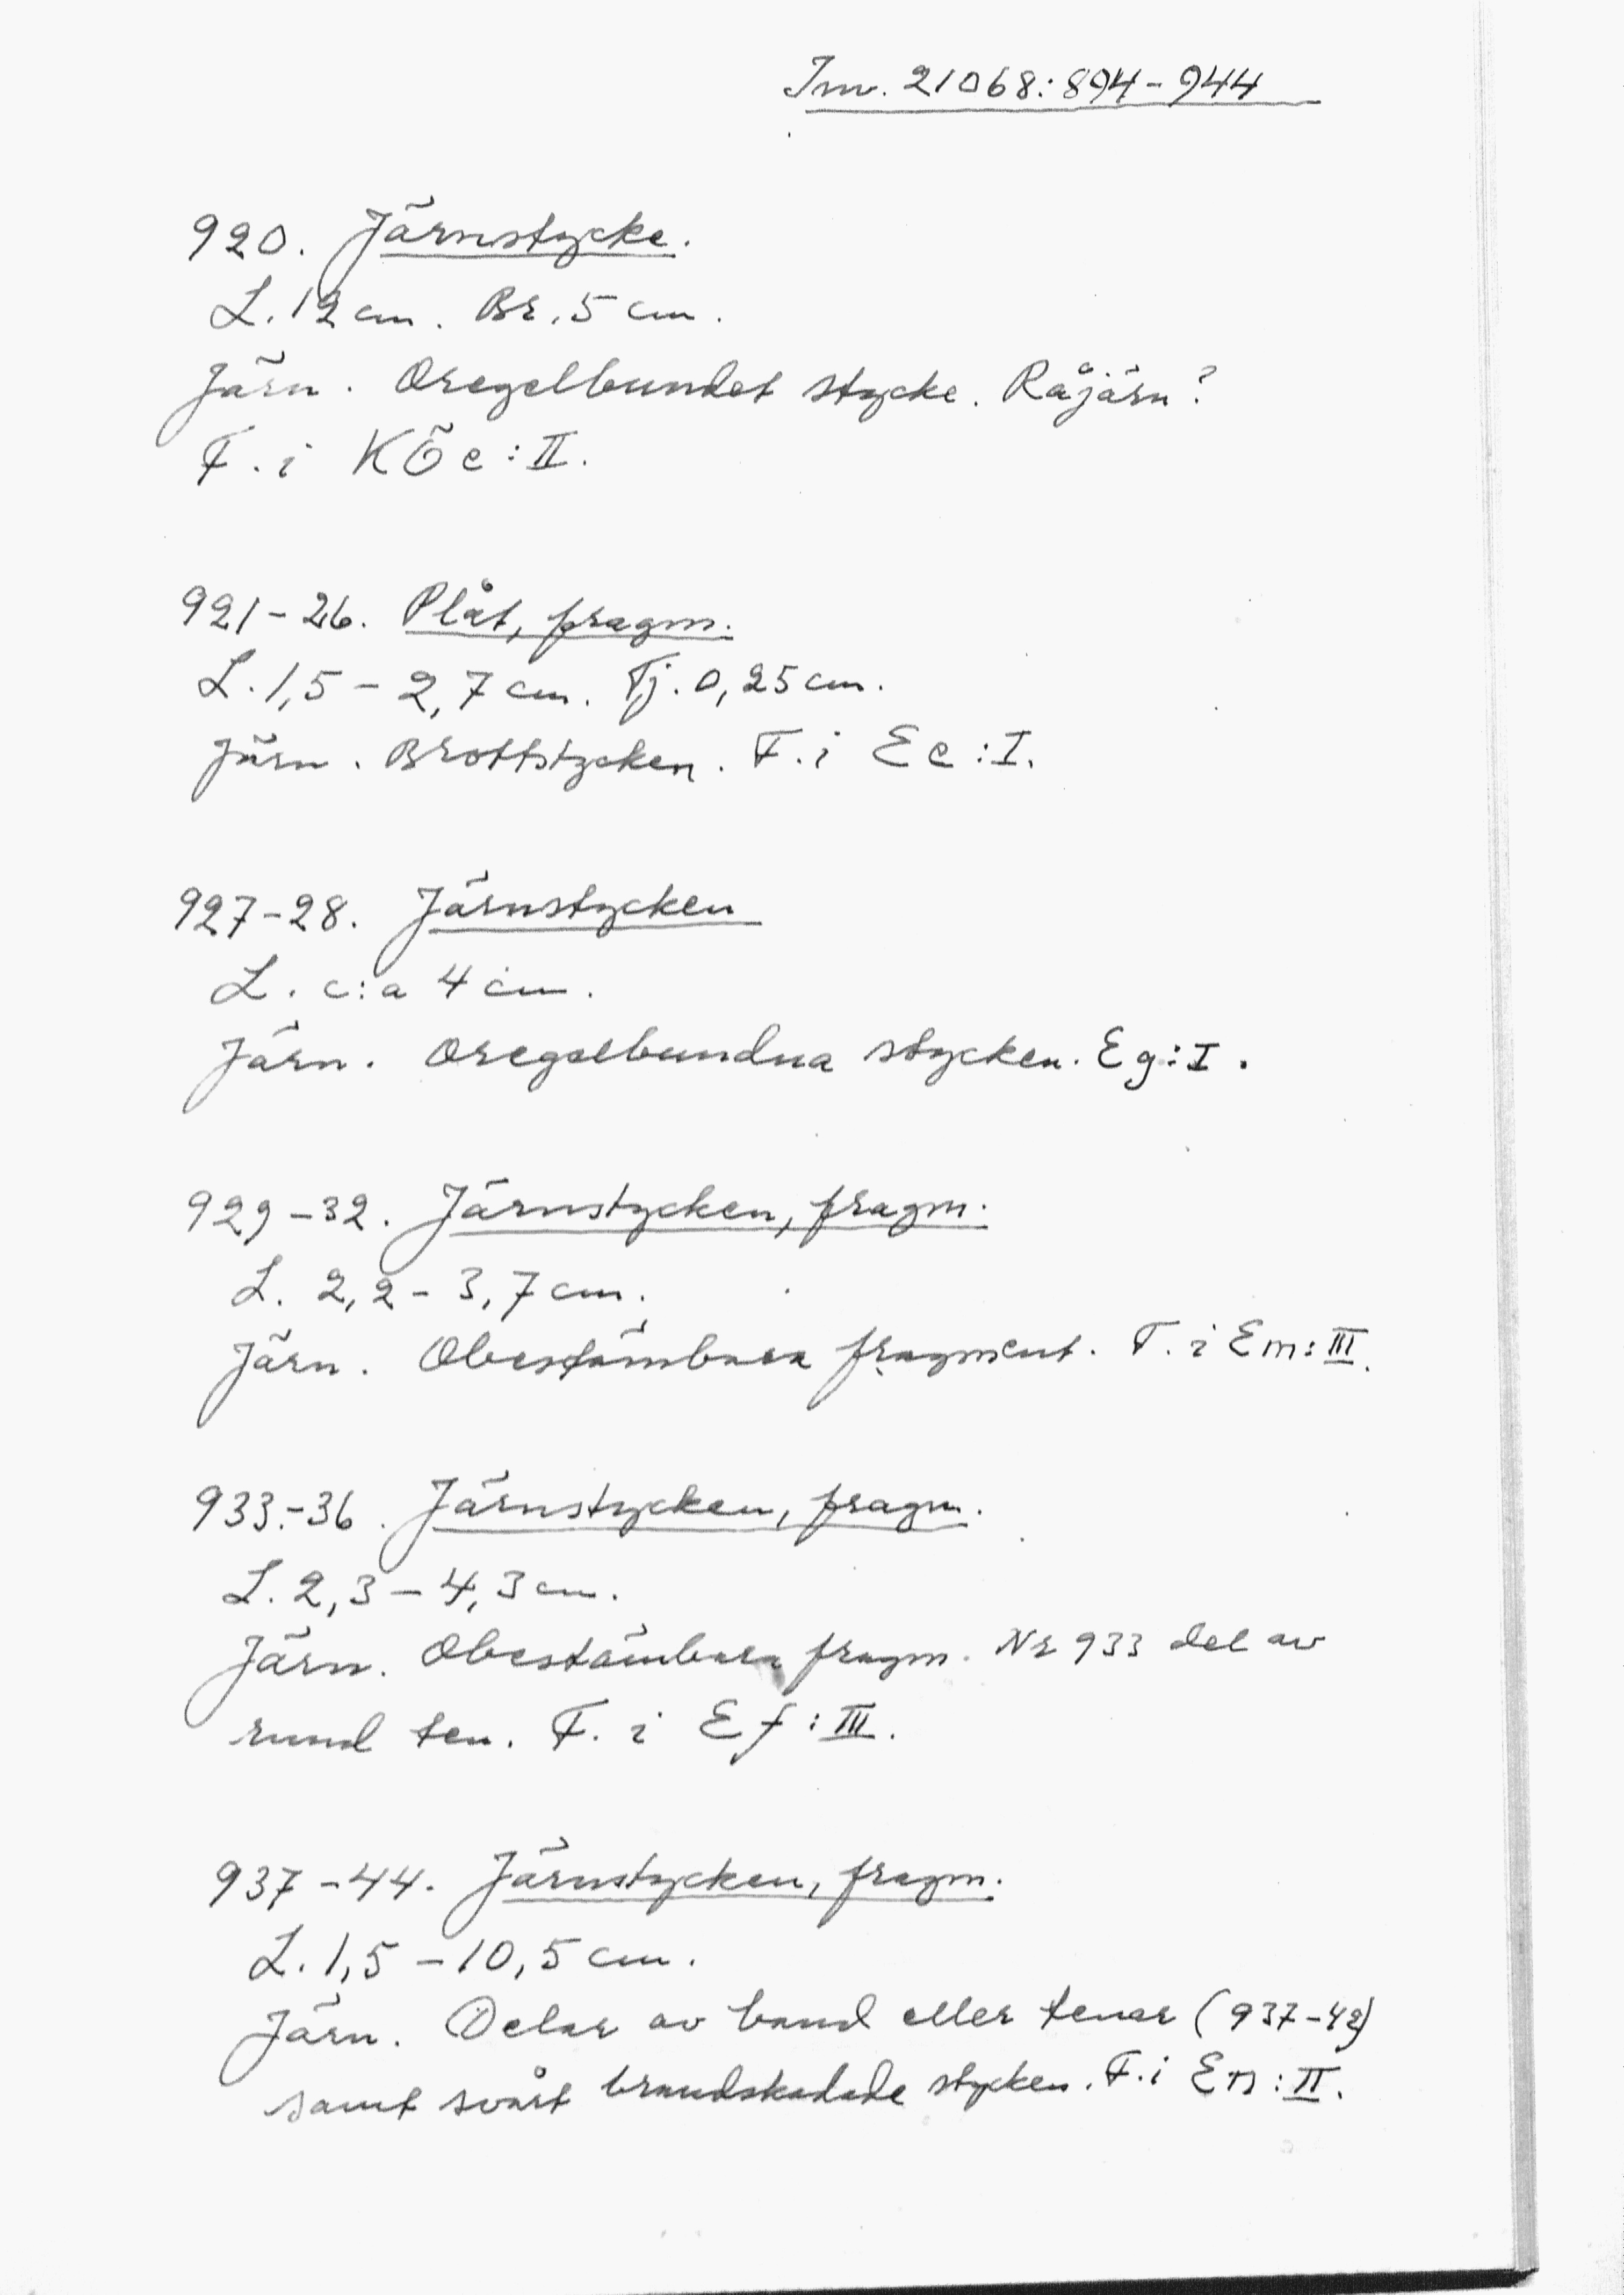 Inv. 21068:894-944
920. Järnstycke.
L. 12 cm. Br. 5 cm.
Järn. Oregelbundet stycke. Råjärn?
F. i KÖe:II.
921-26. Plåt, fragm.
L. 1,5 - 2,7 cm. Tj. 0,25 cm.
Järn. Brottstycken. F. i Ee:I.
927-28. Järnstycken
L. c:a 4 cm.
Järn. Oregelbundna stycken. Eg:I.
929-32. Järnstycken, fragm.
L. 2,2 - 3,7 cm.
Järn. Obestämbara fragment. F. i Em:III.
933-36. Järnstycken, fragm.
L. 2,3 - 4,3 cm.
Järn. Obestämbara fragm. Nr 933 del av
rund ten. F. i Ef:III.
937-44. Järnstycken, fragm.
L. 1,5 - 10,5 cm.
Järn. Delar av band eller tenar (937-42)
samt svårt brandskadade stycken. F. i Em:II.